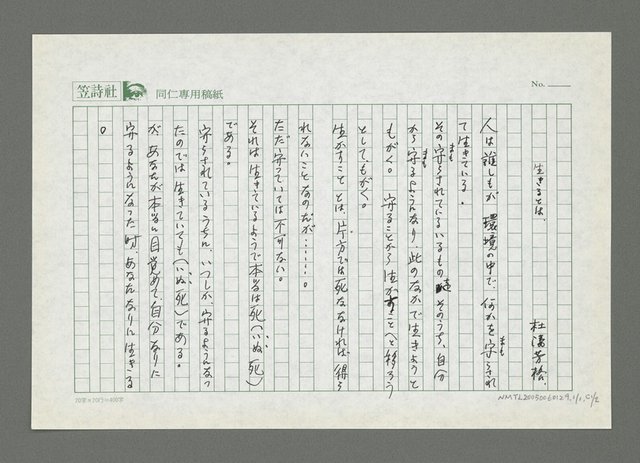 笠詩社
同仁専用稿紙
No.
生きるとは、
杜潘芳格、
人は誰しもが、環境の中で、何かを守られ
て生きている。
その守られているもの そのうち、自分
から守るようになり、此のなかで生きようと
もがく。守ることから生かすことへと移ろう
としてもがく。
生かすこととは、片方では死ななければ得ら
れないことなのだが……。
ただ守っていては不可ない。
それは生きているようで本当は死(いぬ死)
である。
守られているうちに、いつしか、守るようになっ
たのでは生きていても(いぬ死)である。
が、あなたが本当に目覚めて、自分なりに
守るようになった時、あなたなりに生きる
。
20字×20行=400字
NMTL20150060129